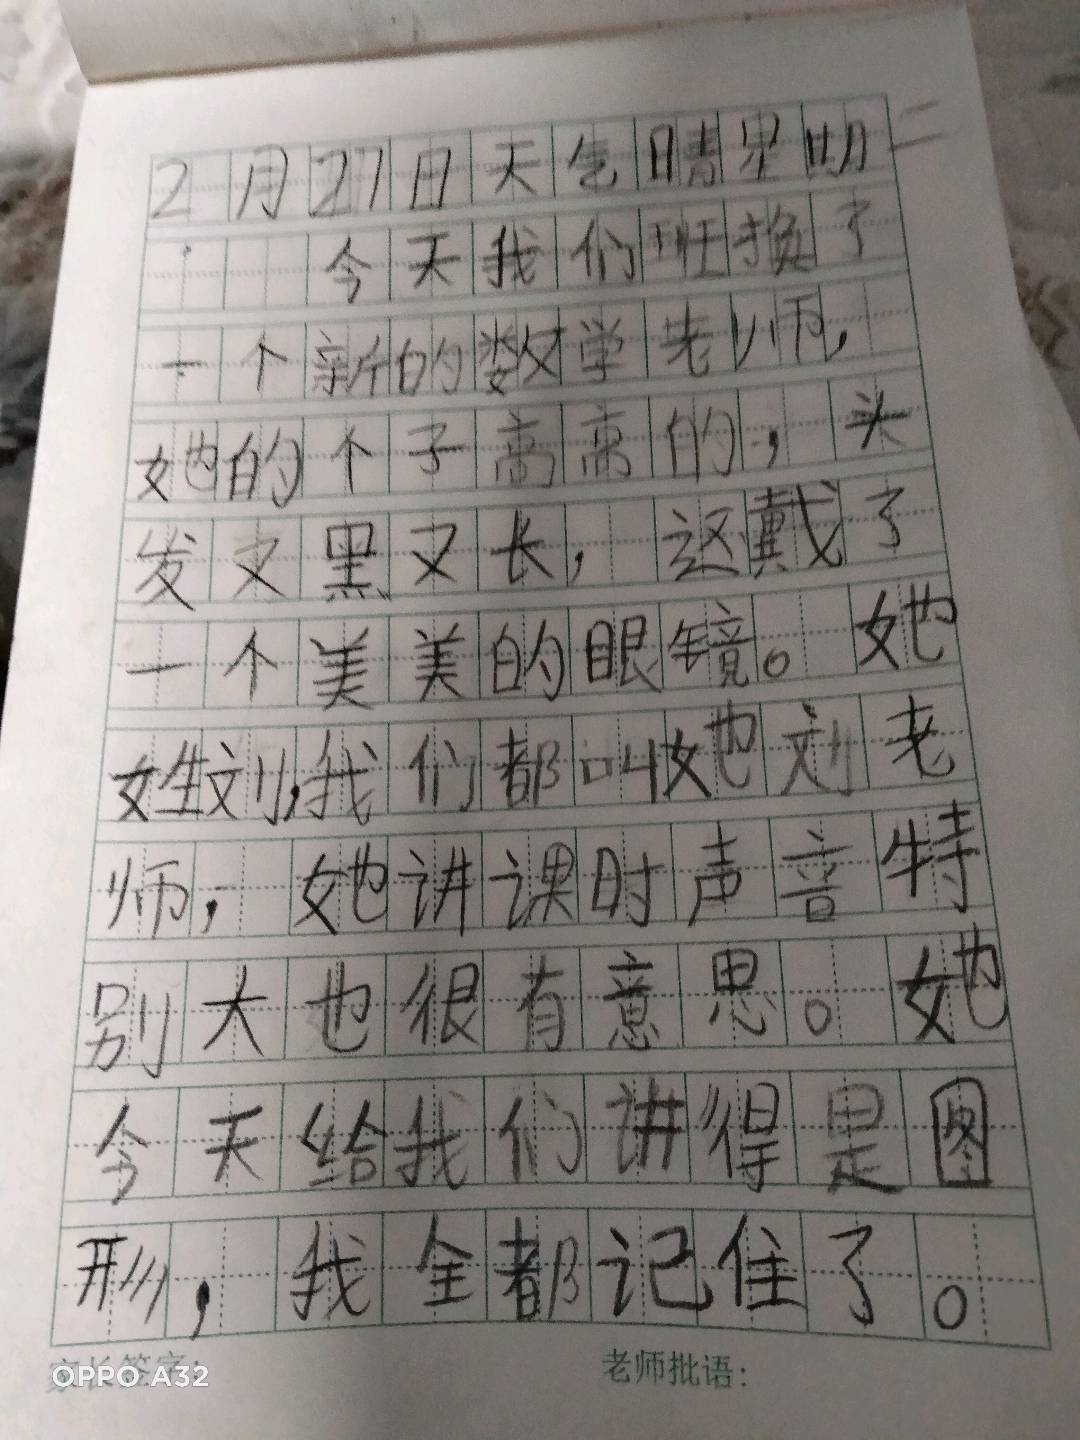 2月27日天气晴星期二
今天我们班换了
一个新的数学老师,
她的个子高高的,头
发又黑又长,这戴了
一个美美的眼镜。她
姓刘,我们都叫她刘老
师,她讲课时声音特
别大也很有意思。她
今天给我们讲得是图
形,我全都记住了。
家长签字:
老师批语:
OPPO A32